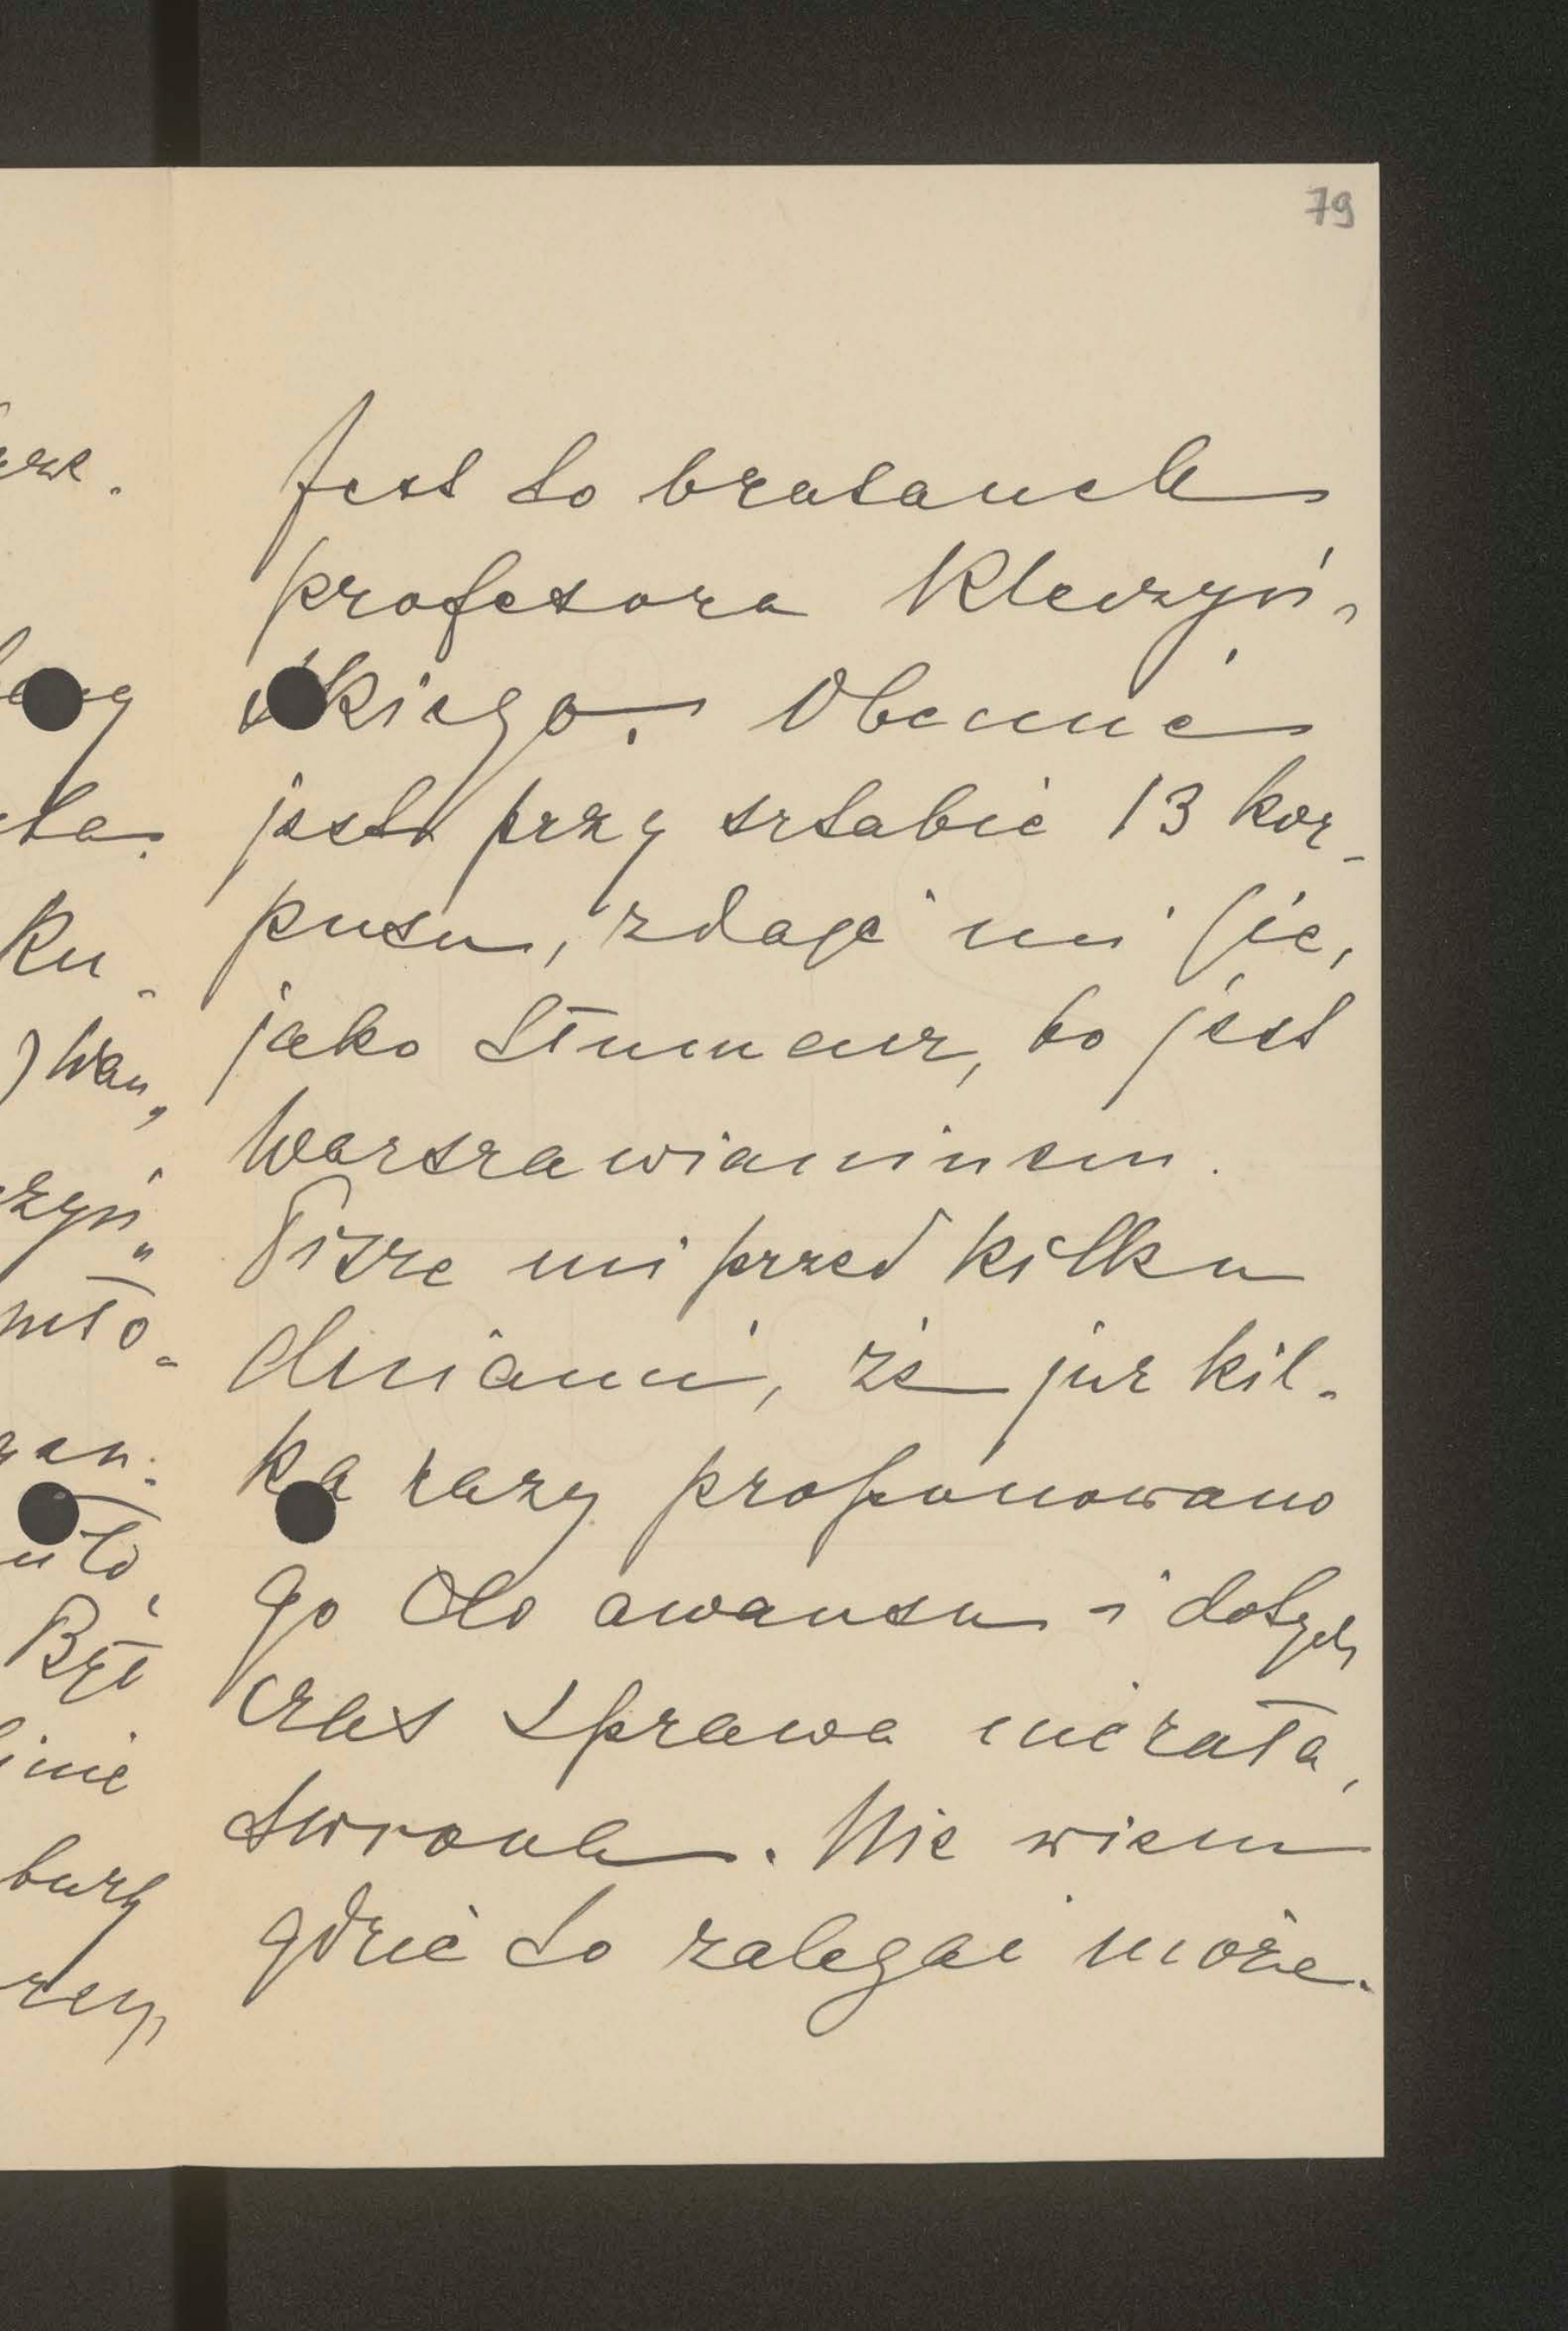 79
Jest to bratanek
profesora Kleczyń-
skiego. Obecnie
jest przy sztabie 13 kor-
pusu, zdaje mi się,
jako tłumacz, bo jest
Warszawianinem.
Pisze mi przed kilku
dniami, że już kil-
ka razy proponowano
go do awansu i dotych
czas sprawa niezała-
twiona. Nie wiem
gdzie to zalegać może.